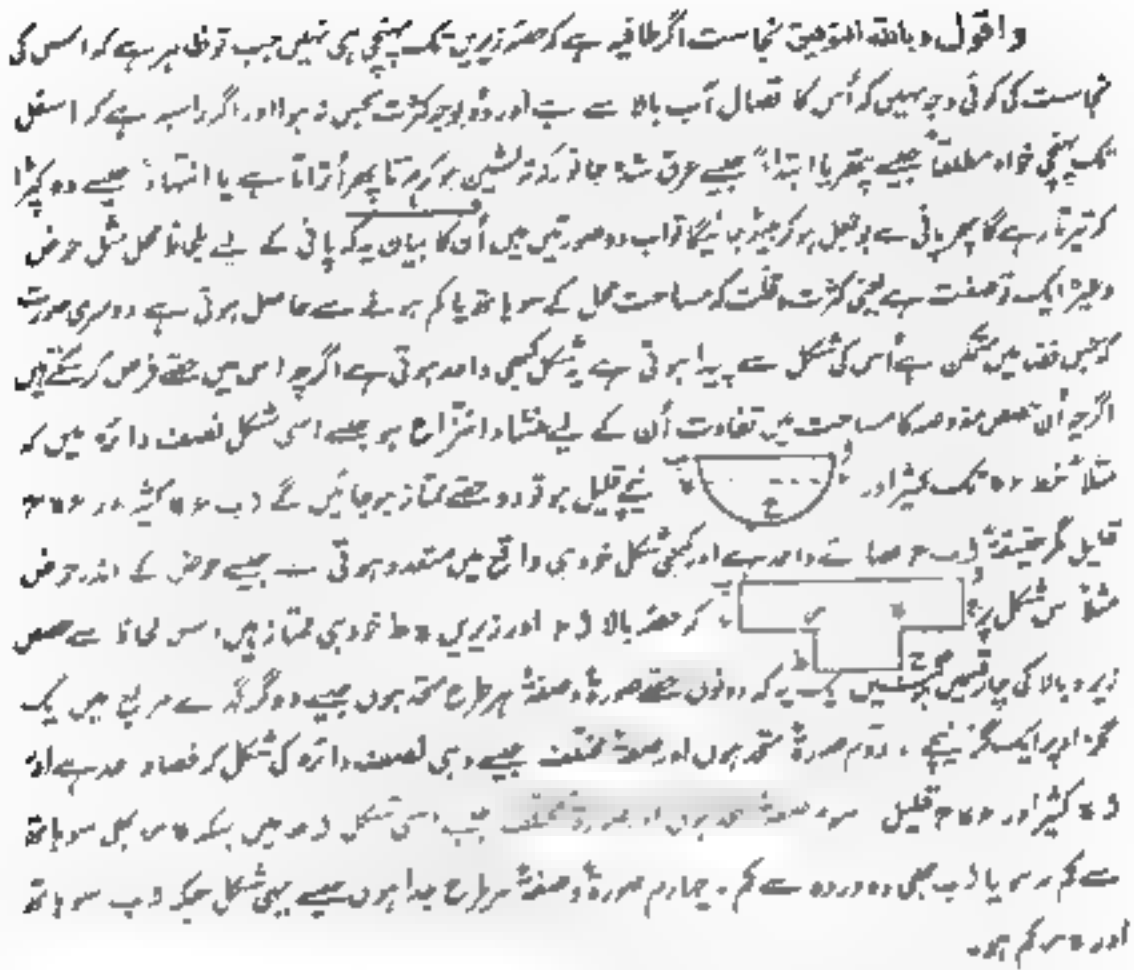 واقول وباللہ التوفیق نجاست اگر طافیہ ہے کہ حصہ زیریں تک پہنچی ہی نہیں جب تو ظاہر ہے کہ اس کی
نجاست کی کوئی وجہ نہیں کہ اُس کا اتصال آب بالا سے ہے اور وہ بوجہ کثرت نجس نہ ہوا اور اگر راسبہ ہے کہ اسفل
تک پہنچی خواہ مطلقاً جیسے پتھر یا ابتداءً جیسے غرق شدہ جانور کہ تہ نشین ہو کر مرتا پھر اُتراتا ہے یا انتہاءً جیسے وہ کپڑا
کہ تیرتا رہے گا پھر پانی سے بوجھل ہو کر بیٹھ جائیگا تو اب دو صورتیں ہیں اُن کا بیان یہ کہ پانی کے لیے بلحاظ محل مثل حوض
وغیرہ ایک تو صفت ہے یعنی کثرت و قلت کہ مساحت محل کے سو ہاتھ یا کم ہونے سے حاصل ہوتی ہے دوسری صورت
کہ جس فضا میں متمکن ہے اُس کی شکل سے پیدا ہوتی ہے یہ شکل کبھی واحد ہوتی ہے اگرچہ اس میں حصے فرض کر سکتے ہیں
اگرچہ اُن حصص مفروضہ کا مساحت میں تفاوت اُن کے لیے منشاء انتزاع ہو جیسے اسی شکل نصف دائرہ میں کہ
مثلاً خط ء ہ تک کثیر اور نیچے قلیل ہو تو دو حصے ممتاز ہو جائیں گے ا ب ء ہ کثیر اور ء ہ ح
قلیل مگر حقیقۃً ا ب ح فضائے واحد ہے اور کبھی شکل خود ہی واقع میں متعدد ہوتی ہے جیسے حوض کے اندر حوض
مثلاً اس شکل پر کہ حصہ بالا ا ء اور زیریں ہ ط خود ہی ممتاز ہیں، اس لحاظ سے حصص
زیر و بالا کی چار قسمیں ہوئیں یک یہ کہ دونوں حصے صورۃً و صفۃً ہر طرح متحد ہوں جیسے دو گز گہرے مربع میں یک
گز اوپر ایک گز نیچے۔ دوم صورۃً متحد ہوں اور صفۃً مختلف جیسے وہی نصف دائرہ کی شکل کہ فضا واحد ہے اور
ا ہ کثیر اور ء ہ ح قلیل سوم صفۃً متحد ہوں اور صورۃً مختلف جیسے اسی شکل دوم میں جبکہ ہ س بھی سو ہاتھ
سے کم نہ ہو یا ا ب بھی دہ در دہ سے کم۔ چہارم صورۃً و صفۃً ہر طرح جدا ہوں جیسے یہی شکل جبکہ ا ب سو ہاتھ
اور ہ س کم ہو۔